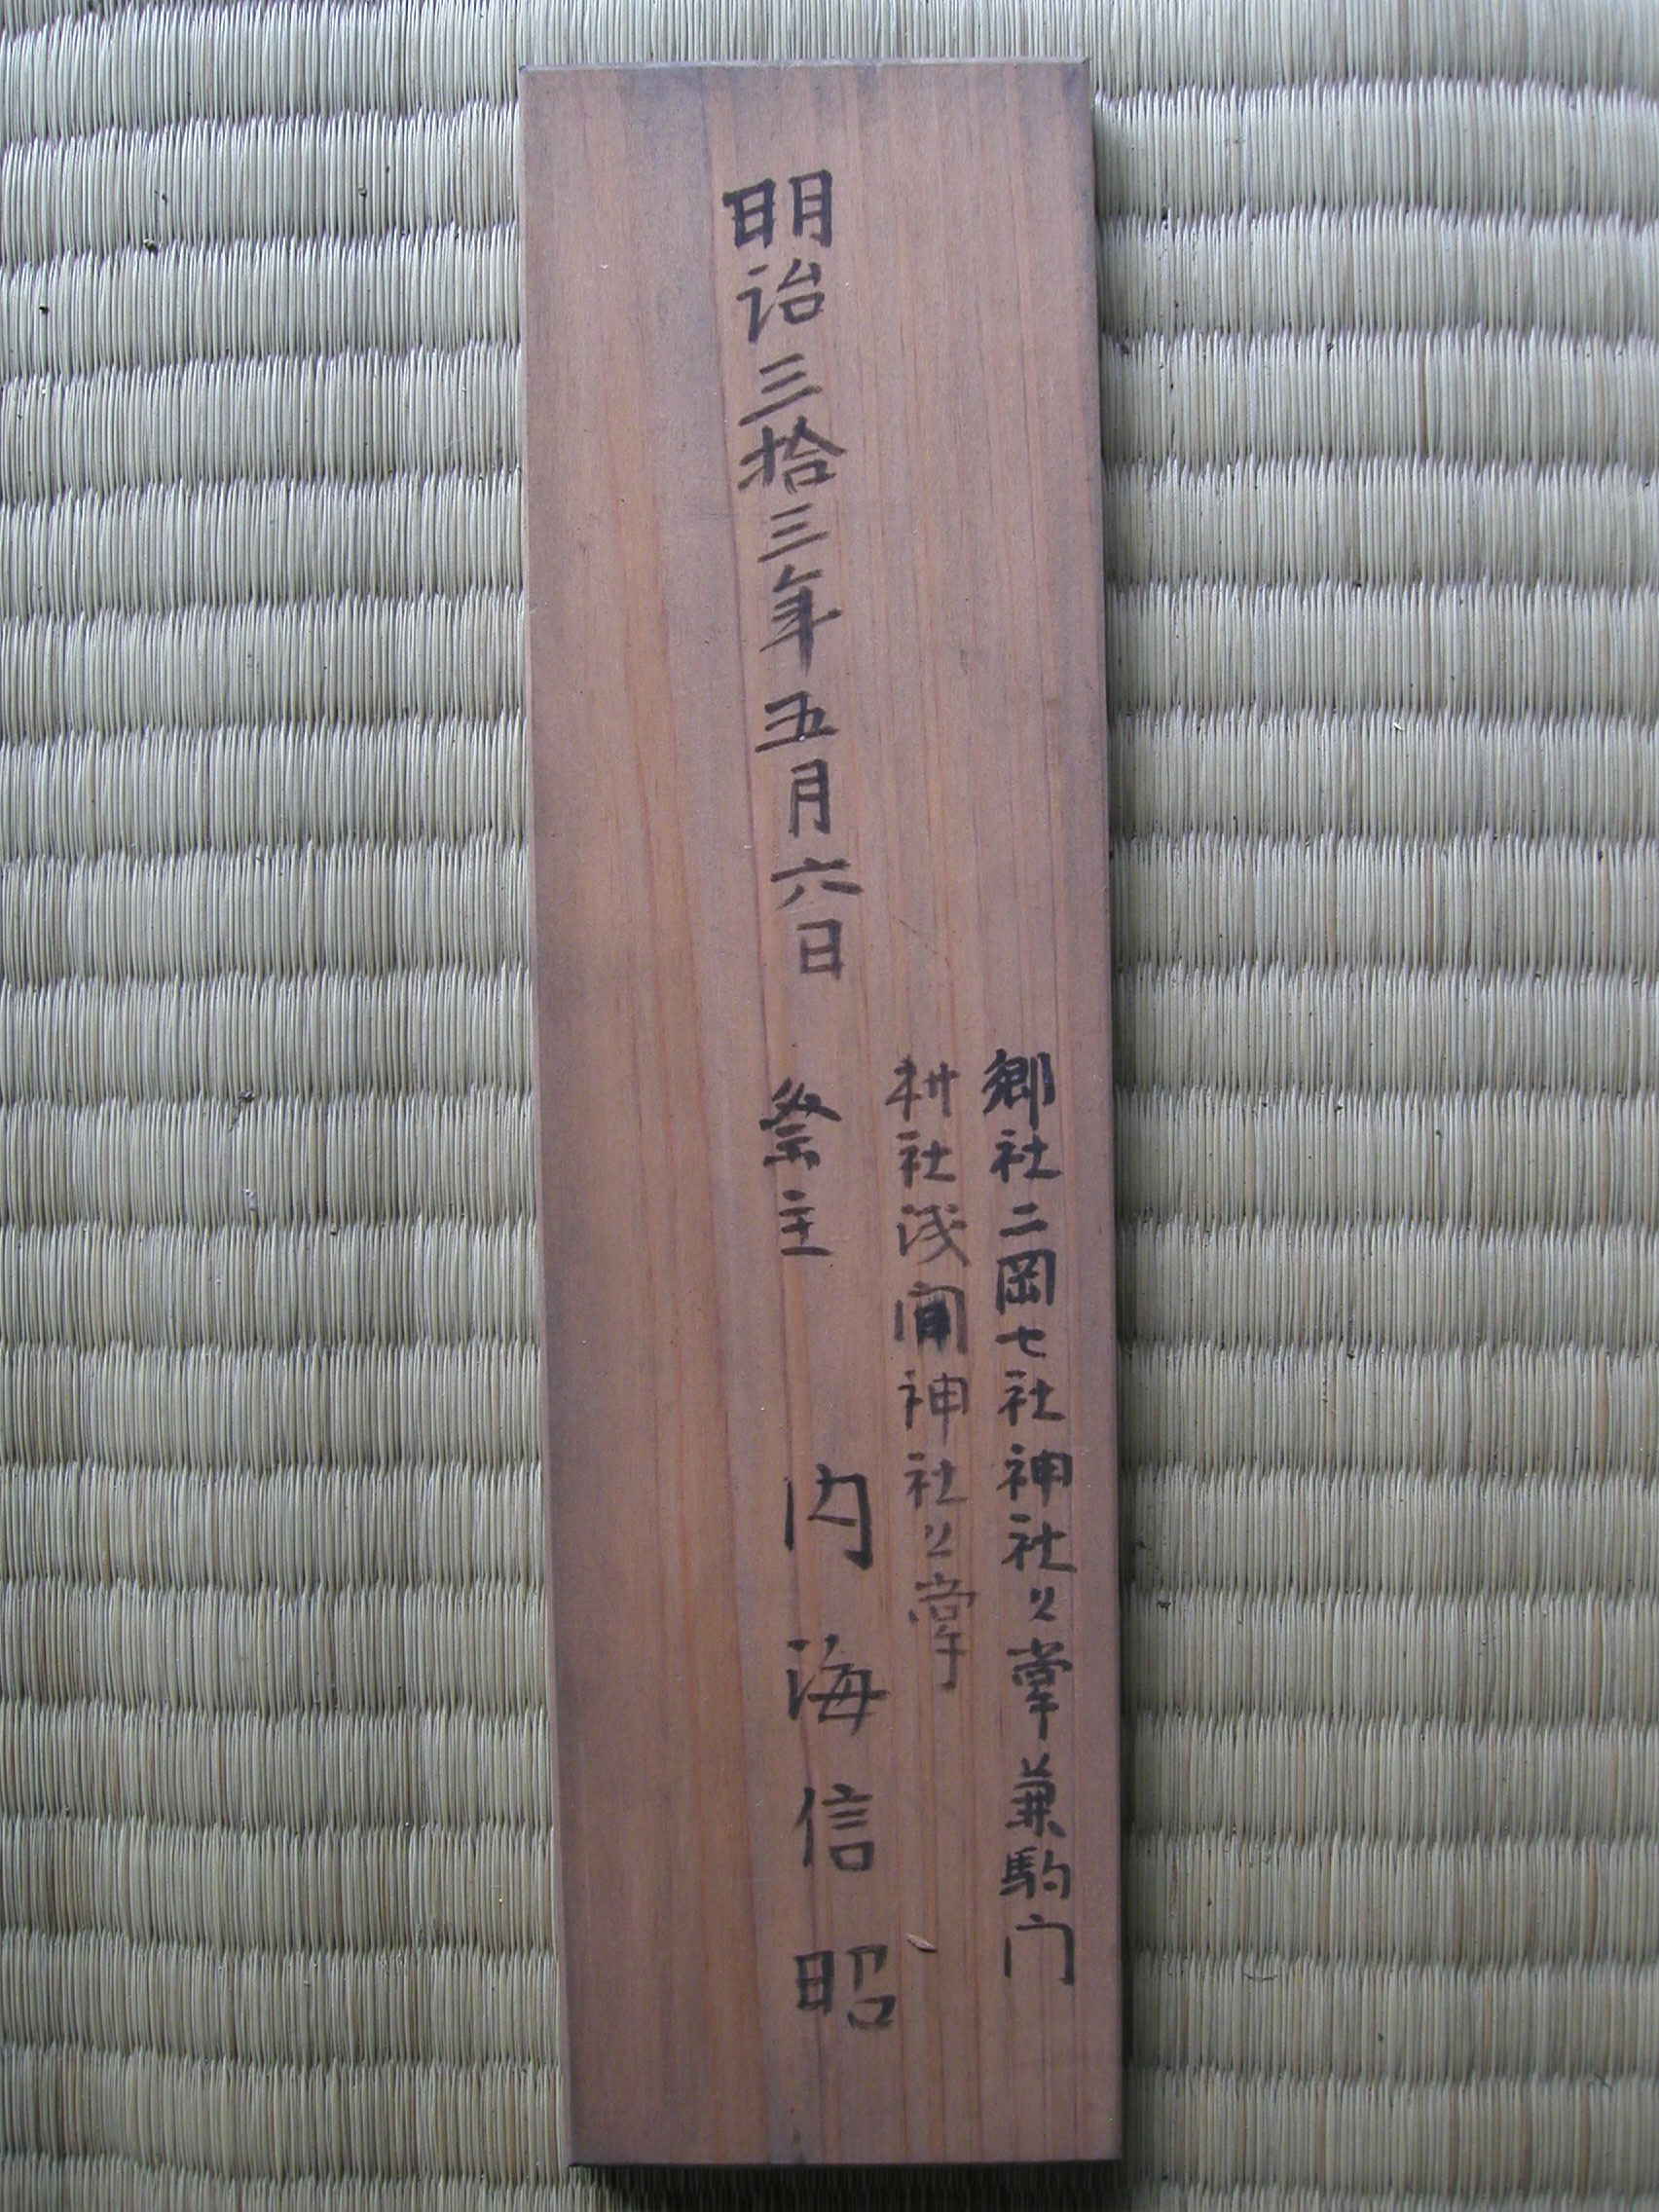 郷社二岡七社神社々掌兼駒門
村社浅間神社々掌
明治三拾三年五月六日 祭主 内海信昭